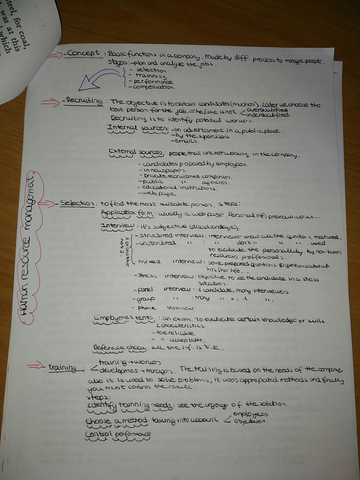 eel, for coal,
was at this
which
Human resource management
→ Concept: Basic functions in a company. Made by diff. process to manage people.
Stages - plan and analyze the job.
- selection
- training
- performance
- compensation
→ Recruiting: The objective is to obtain candidates (much or) later we choose the
best person for the job
Recruiting is to identify potential workers.
Internal sources - an advertisement in a public place.
- by the
- emails.
External sources: people that are not working in the company.
- candidates proposed by employees
- in newspapers
- private recruitment companies
- public " agencies.
- educational institutions
- web page.
→ Selection: to find the most suitable person, steps:
Application form: usually a web page. Personal inf, previous work...
Interview: it's subjective (disadvantage).
- structured interview: interviewer read all the questions
- unstructured " " don't " " used
to evaluate the personality by human
resources professionals.
- mixed interview: some prepared questions & questions about
his/her life...
- stress interview: objective to see the candidate in a stress
situation.
- panel interview: 1 candidate, many interviewers
- group " : many " , 1 " .
- phone interview
Employment tests: an exam to evaluate certain knowledge or skills
characteristics:
- be reliable
- " acceptable
Reference check: all the inf. is true.
→ Training: training → workers
development → managers. The training is based on the needs of the company,
also it is used to solve problems, it uses appropriated methods and finally
you must control the results
steps:
Identify training needs: see the of the situation.
Choose a method taking into account employees
objectives.
Control performance